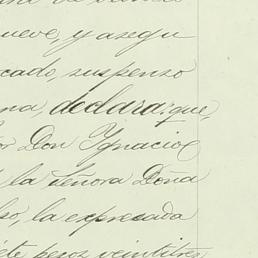 ueve, y asegu
cado, suspenso
na, declara: que,
or Don Ygnacio
la Señora Doña
so, la expresada
ete pesos veintitres